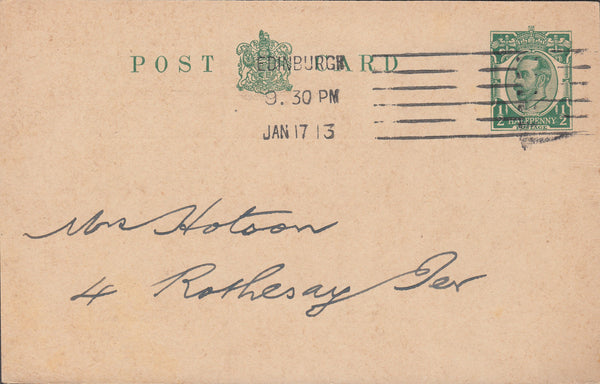 POST CARD
EDINBURGH
9.30 PM
JAN 17 13
½ HALFPENNY ½
POSTAGE
Mrs Hotson
4 Rothesay Ter